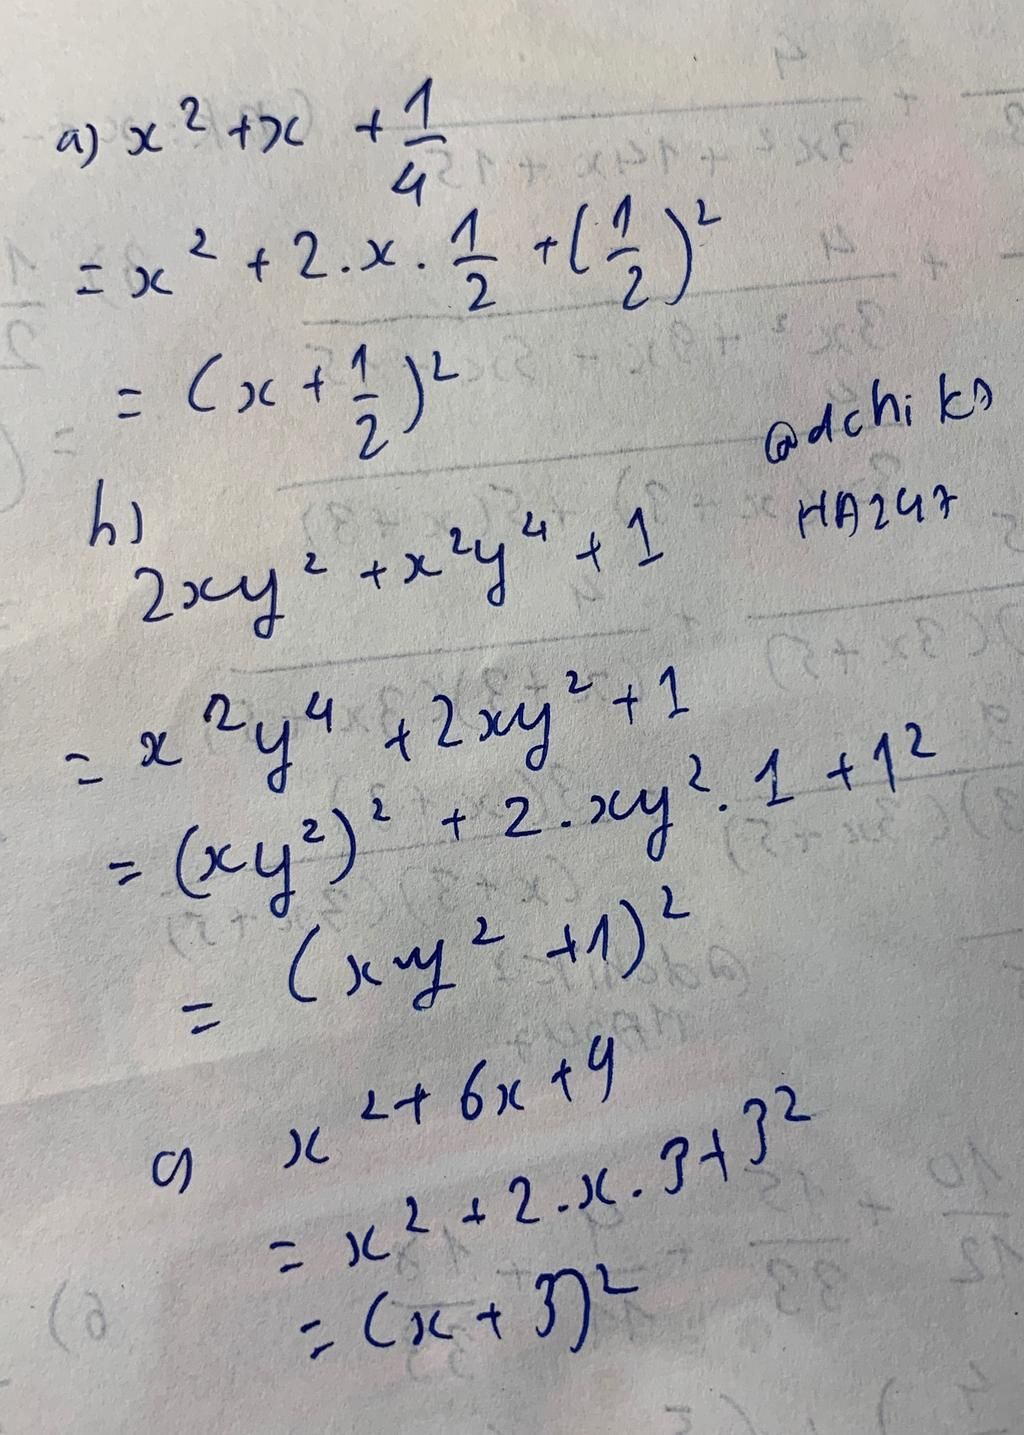 a) x² + x + 1/4
= x² + 2.x. 1/2 + (1/2)²
= (x + 1/2)²
@dchiks
HA247
h)
2xy² + x²y⁴ + 1
= x²y⁴ + 2xy² + 1
= (xy²)² + 2.xy².1 + 1²
= (xy² + 1)²
c) x² + 6x + 9
= x² + 2.x.3 + 3²
= (x + 3)²